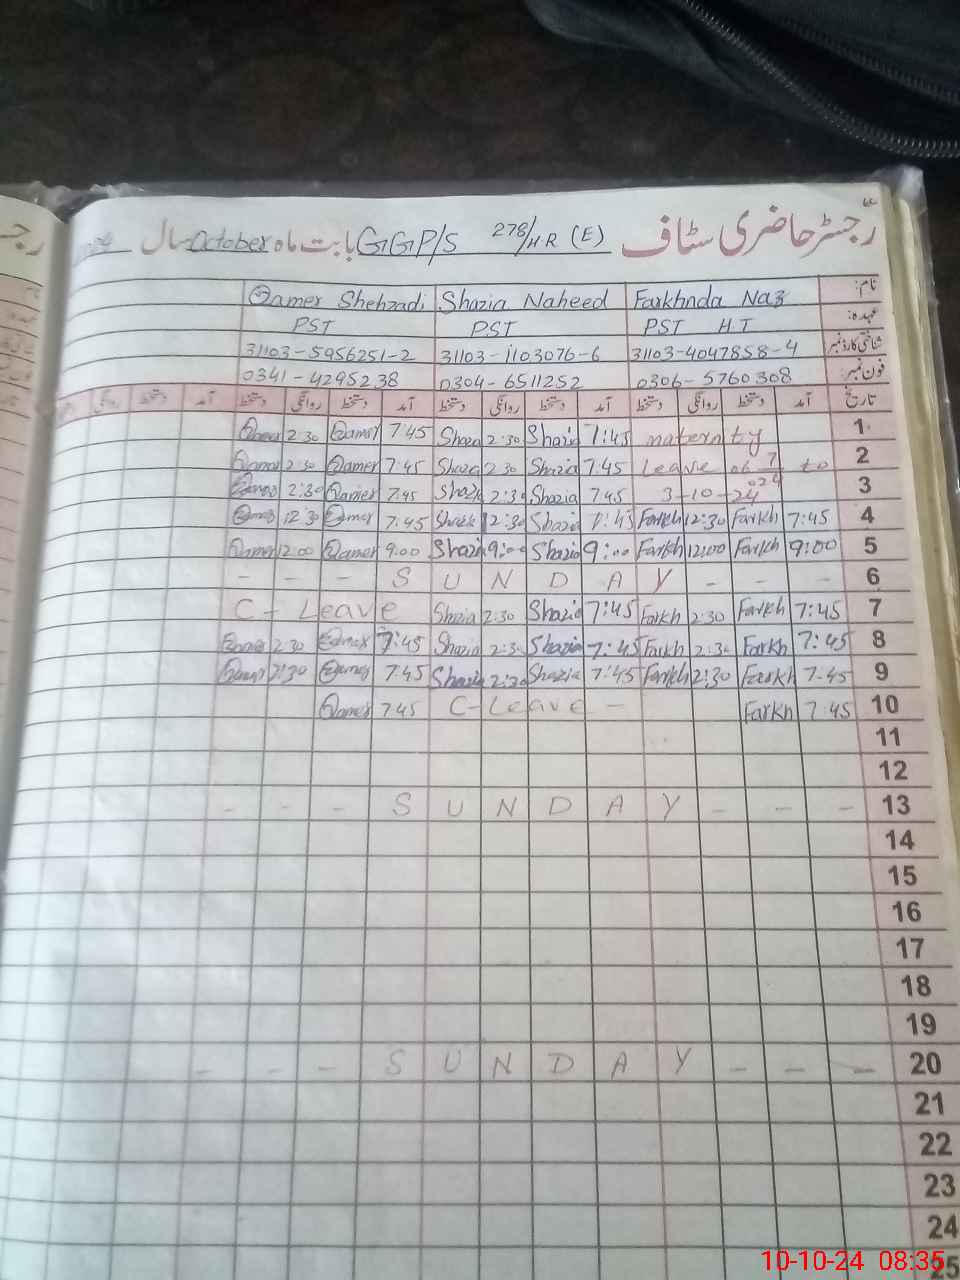 رجسٹر حاضری سٹاف GGP/S 278/HR (E) بابت ماہ October سال
نام: Farkhnda Naz Shazia Naheed Qamer Shehzadi
عہدہ: PST H.T PST PST
شناختی کارڈ نمبر 31103-4047858-4 31103-1103076-6 31103-5956251-2
فون نمبر: 0306-5760308 0304-6511252 0341-4295238
تاریخ آمد دستخط روانگی دستخط آمد دستخط روانگی دستخط آمد دستخط روانگی دستخط آمد دستخط روانگی
1 maternity 7:45 Shazia 2:30 Shaza 7:45 Qamer 2:30 Qamer
2 Leave 06 7 024 to 7:45 Shazia 2:30 Shaza 7:45 Qamer 2:30 Qamer
3 3-10-24 7:45 Shazia 2:30 Shazia 7:45 Qamer 2:30 Qamer
4 7:45 Farkh 12:30 Farkh 7:45 Shazia 12:30 Shazia 7:45 Qamer 12:30 Qamer
5 9:00 Farkh 12:00 Farkh 9:00 Shazia 9:00 Shazia 9:00 Qamer 12:00 Qamer
- - - S U N D A Y - - - 6
7 7:45 Farkh 2:30 Farkh 7:45 Shazia 2:30 Shazia C-Leave
8 7:45 Farkh 2:30 Farkh 7:45 Shazia 2:30 Shazia 7:45 Qamer 2:30 Qamer
9 7:45 Farkh 2:30 Farkh 7:45 Shazia 2:30 Shazia 7:45 Qamer 2:30 Qamer
10 7:45 Farkh C-Leave - 7:45 Qamer
11
12
- - - S U N D A Y - - - 13
14
15
16
17
18
19
- - - S U N D A Y - - - 20
21
22
23
24
25
10-10-24 08:35